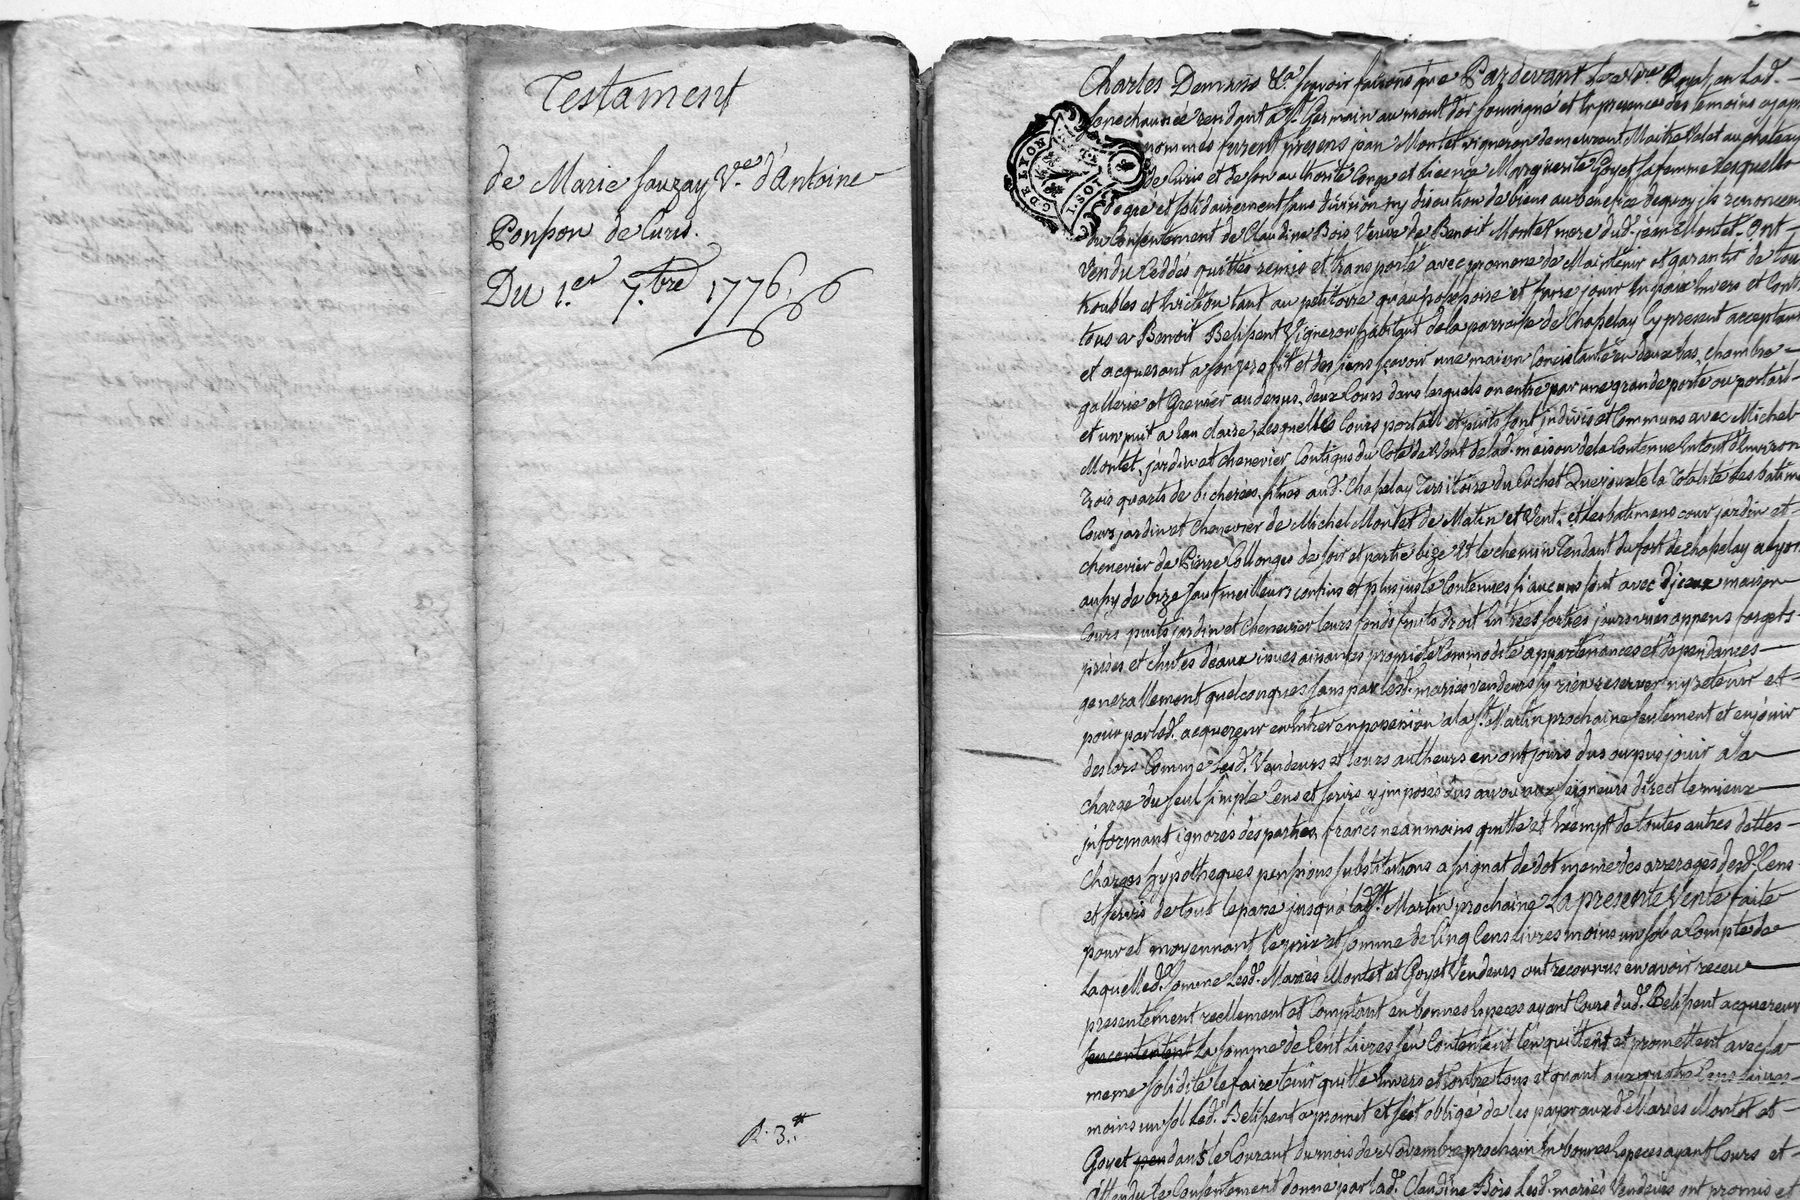 Testament
de Marie Sauzay V.e d'Antoine
Ponpon de Curis.
Du 1.er 7.bre 1776.
R. 3.#
G DE LYON
1. SOL
Charles Demurs &a Scavoir faisons que Pardevant le No.re Royal en Lad.
Senechaussée residant a St. Germain au mont dor soussigné et En presences des temoins ayapres
nommés furent presens jean Montet vigneron demeurant Maitre Valet au chateau
de Curis et de son authorité Conge et Licence Marguerite Goyet sa femme Lesquels
de gre et solidairement sans division ny discution de biens au benefice de quoy ils renoncent
du Consentement de Claudine Bois Veuve de Benoit Montet mere dud. jean Montet Ont
Vendu Ceddés quittes remis et transporté avec promesse de Maintenir et garantir de tous
troubles et Eviction tant au petitoire qu'au possessoire et faire jouir En paix Envers et Contre
tous a Benoit Belissent Vigneron habitant de la parroisse de Chasselay Cy present acceptant
et acquerant a son profit et des siens sçavoir une maison Concistante en deux bas, chambre
gallerie et Grenier au dessus, deux Cours dans lesquels on entre par une grande porte ou portail
et un puit a Eau claire, Lesquelles Cours portail et puits sont indivis et Communs avec Michel
Montet, jardin et chenevier Contigus du Coté de Vent de lad. maison de la Contenue En tout d'Environ
trois quarts de bicherées, situés aud. Chasselay Territoire du Cuchet Que jouxte la Totalité des batimens
Cours jardin et chenevier de Michel Montet de Matin et Vent, et Les batimens cour jardin et
chenevier de Pierre Collonges de soir et partie bize Et le chemin Tendant du fort de chasselay a Lyon
aussy de bize sauf meilleurs confins et plus juste Contenues si aucuns sont avec Diceux maison
Cours puits jardin et chenevier Leurs fonds fruits droit Entrées sorties jours vues appens forgets
prises et chutes d'eaux issues aisances proprieté Commodité appartenances et dependances
generallement quelconques sans par Lesd. mariés vendeurs sy rien reserver ny retenir et
pour par led. acquereur en Entrer en possession a la St. Martin prochaine seulement et en jouir
des lors Comme Lesd. Vendeurs et leurs autheurs en ont jouis dus ou pus jouir a la
charge du seul simple Cens et servis y imposés dus au ou aux seigneurs direct le mieux
informant ignorés des parties, francs neanmoins quitte et Exempt de toutes autres dettes
Charges hypotheques pensions substitutions assignat de dot meme des arrerages desd. Cens
et servis de tout le passé jusqu'a lad. St. Martin prochaine La presente Vente faite
pour et moyennant le prix et somme de Cinq Cens livres moins un sol a Compte de
Laquelle d. somme Lesd. Mariés Montet et Goyet Vendeurs ont reconnus en avoir receu
presentement reellement et Comptant en bonnes Especes ayant Cours dud. Belissent acquereur
sen contentent La somme de Cent Livres sen Contentent L'en quittent et promettent avec la
meme solidité le faire tenir quitte Envers et Contre tous et quant aux quatre Cens Livres
moins un sol Led. Belissent a promit et s'est obligé de les payer auxd. Mariés Montet et
Goyet pen dans le Courant du mois de Novembre prochain En bonnes Especes ayant Cours et
attendu le Consentement donné par lad. Claudine Bois Lesd. mariés Vendeurs ont promis et